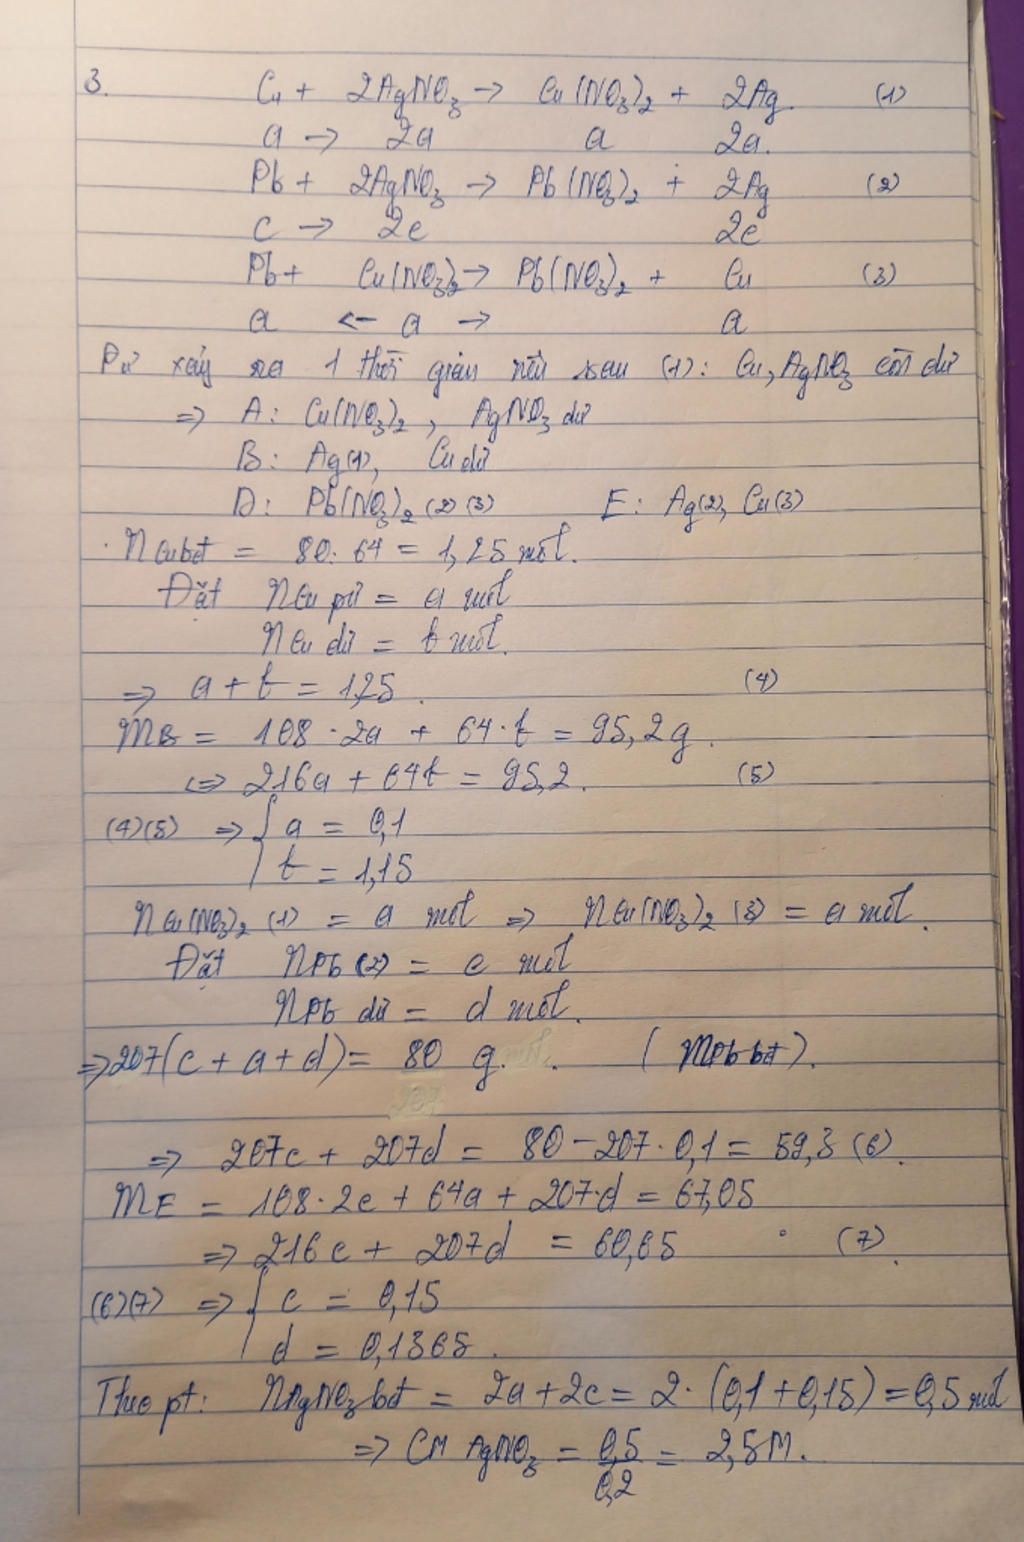 3. Cu + 2AgNO3 → Cu(NO3)2 + 2Ag. (1)
a → 2a a 2a.
Pb + 2AgNO3 → Pb(NO3)2 + 2Ag (2)
c → 2c 2c
Pb + Cu(NO3)2 → Pb(NO3)2 + Cu (3)
a ← a → a
Pư xảy ra 1 thời gian nên sau (1): Cu, AgNO3 còn dư
=> A: Cu(NO3)2, AgNO3 dư
B: Ag(1), Cu dư
D: Pb(NO3)2 (2) (3) E: Ag(2), Cu(3)
nCu bđ = 80 : 64 = 1,25 mol.
Đặt nCu pư = a mol
nCu dư = b mol.
=> a + b = 1,25. (4)
mB = 108 · 2a + 64 · b = 95,2g.
<=> 216a + 64b = 95,2. (5)
(4)(5) => { a = 0,1
b = 1,15
nCu(NO3)2 (1) = a mol => nCu(NO3)2 (3) = a mol.
Đặt nPb (2) = c mol
nPb dư = d mol.
=> 207(c + a + d) = 80 g. (mPb bđ).
=> 207c + 207d = 80 - 207 · 0,1 = 59,3 (6).
mE = 108 · 2c + 64a + 207·d = 67,05
=> 216c + 207d = 60,65 (7).
(6)(7) => { c = 0,15
d = 0,1365.
Theo pt: nAgNO3 bđ = 2a + 2c = 2 · (0,1 + 0,15) = 0,5 mol
=> CM AgNO3 = 0,5/0,2 = 2,5M.